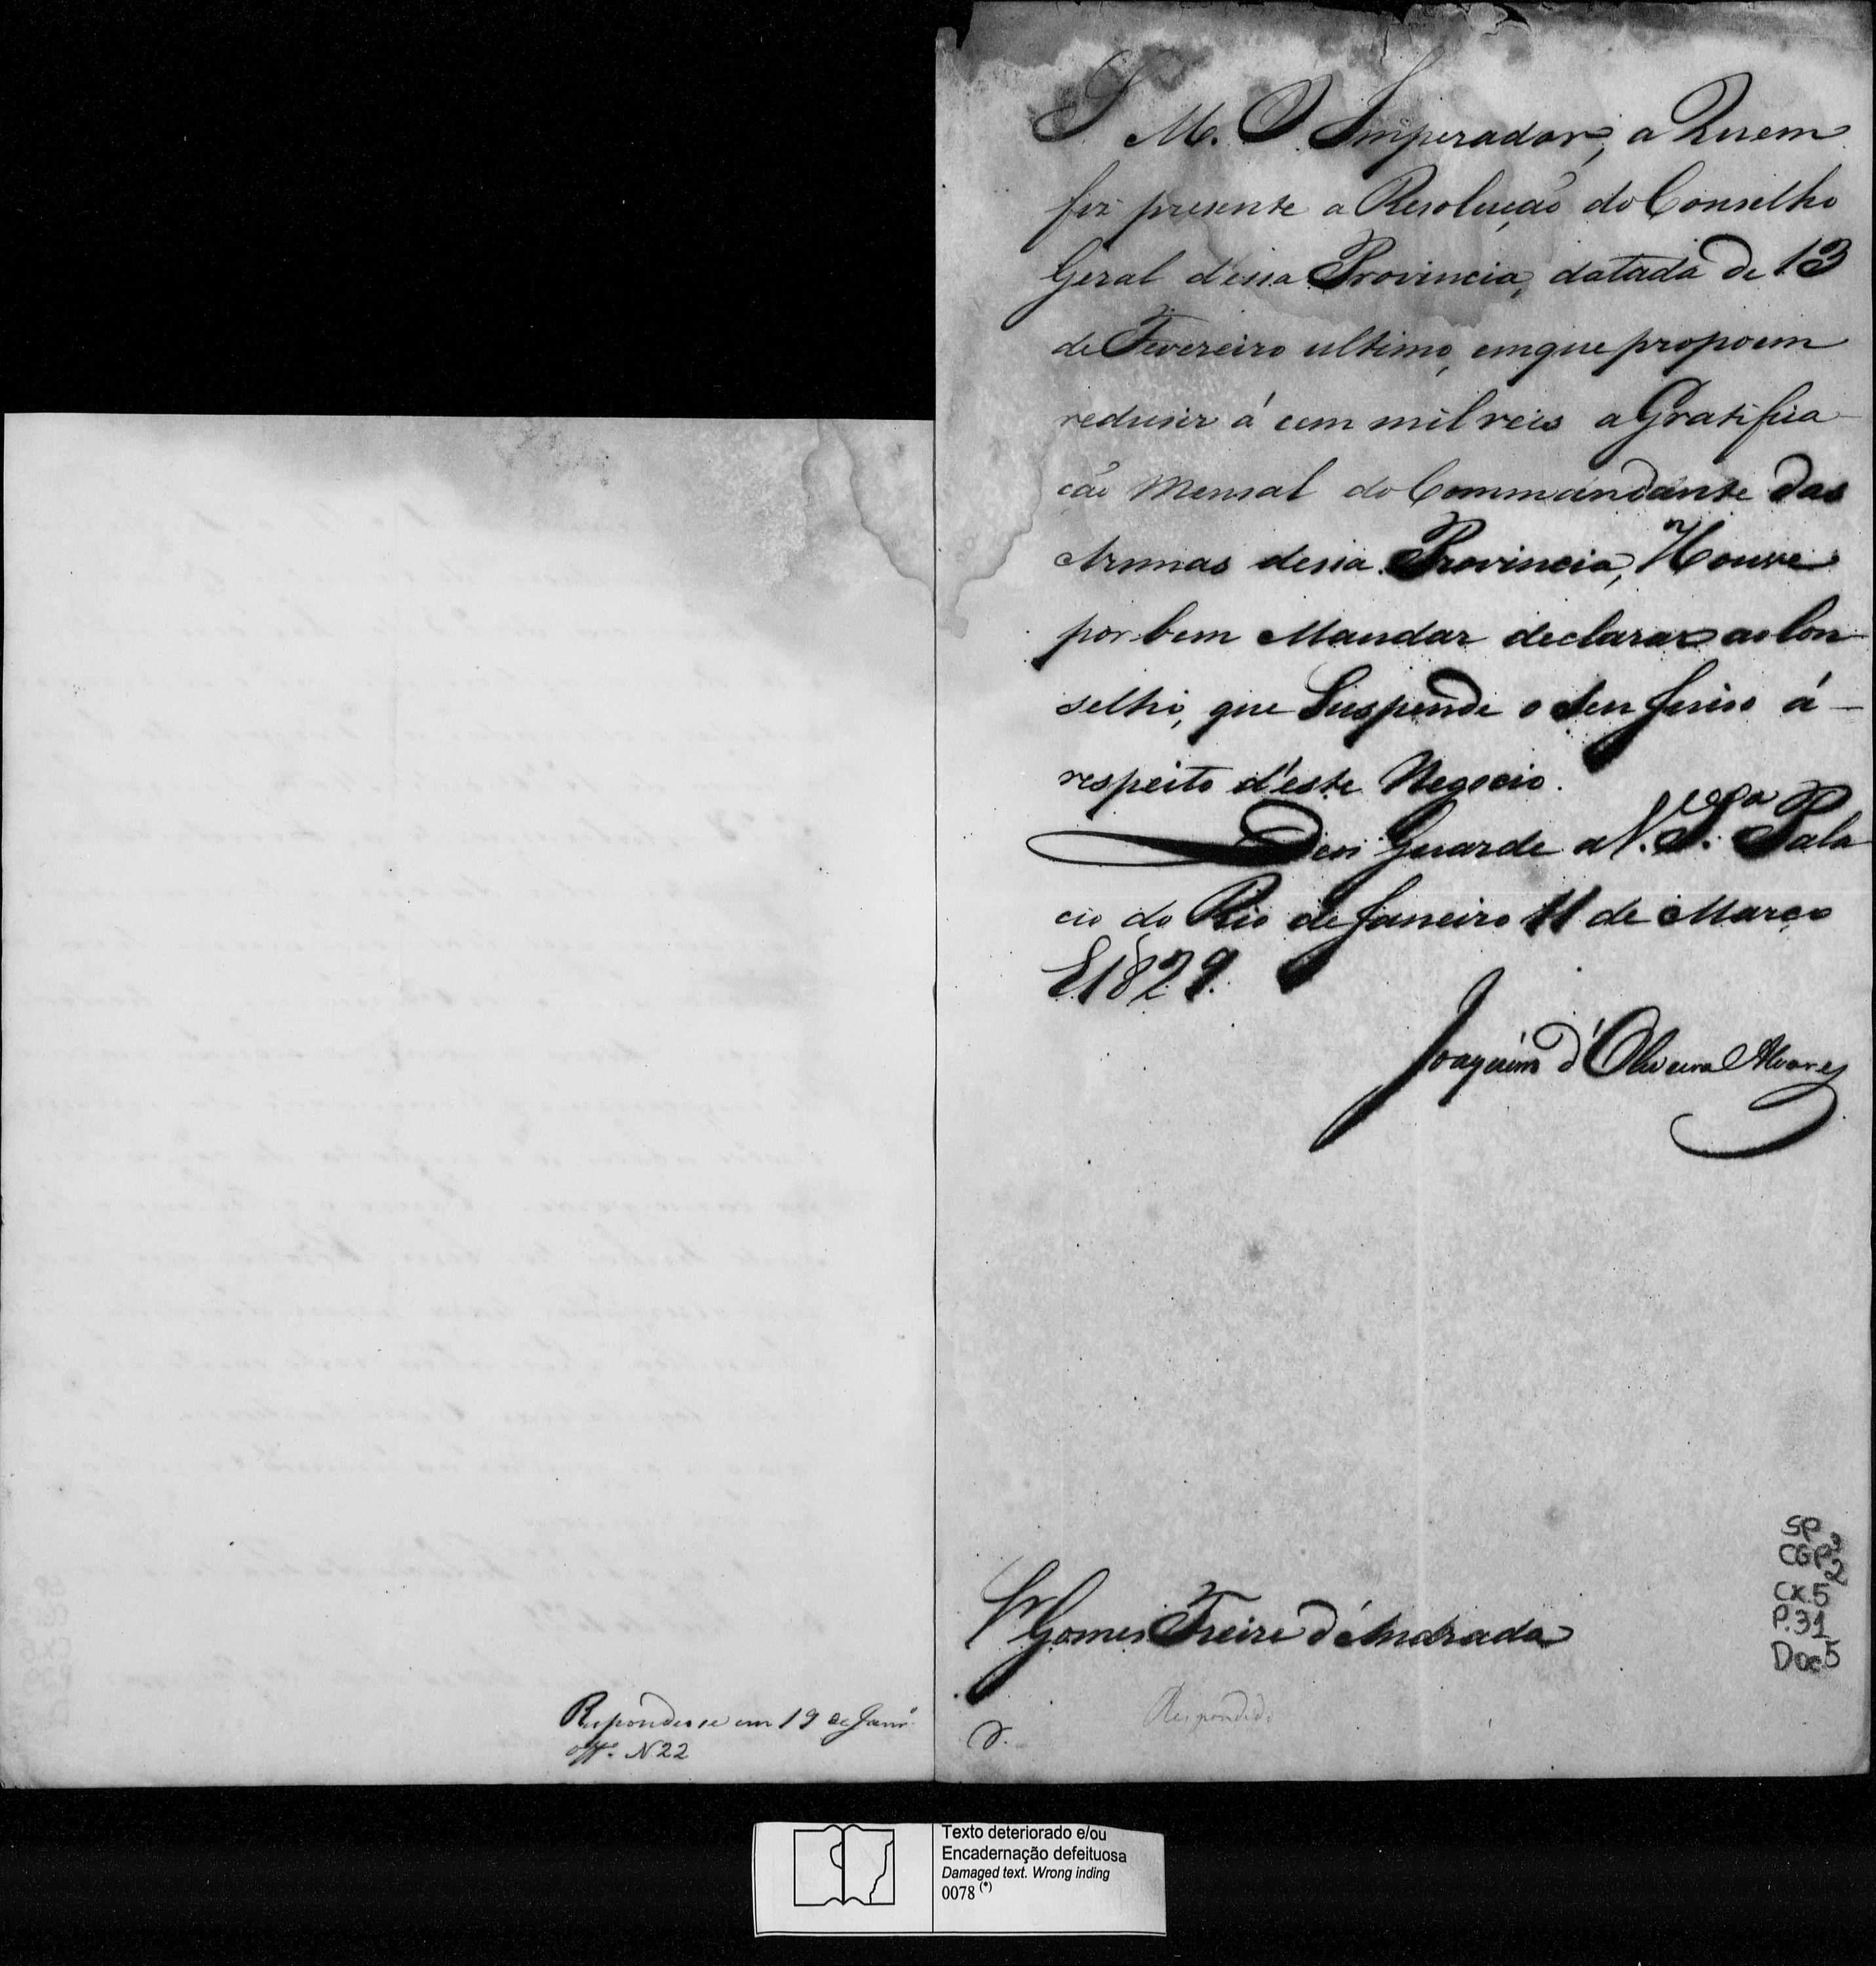 S. M. O Imperador, a Quem
foi presente a Resolução do Conselho
Geral d'essa Provincia, datada de 13
de Fevereiro ultimo, em que propoem
redusir á cem mil reis a Gratifica-
ção Mensal do Commandante das
Armas dessa Provincia, Houve
por bem Mandar declarar ao Con-
selho, que Suspende o Seu Juiso á
respeito d'este Negocio.
Deos Guarde a V. S. Pala-
cio do Rio de Janeiro 11 de Março
E 1829.
Joaquim d'Oliveira Alvares
Sr Gomes Freire d'Andrada
Respondido
Respondeo se em 19 de Janr.o
Off.o N 22
SP
CGP3
2
CX.5
P.31
Doc5
Texto deteriorado e/ou
Encadernação defeituosa
Damaged text. Wrong inding
0078 (*)